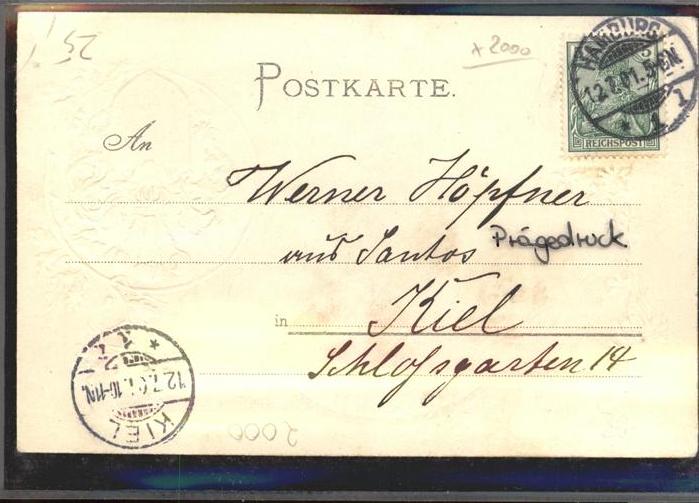 52
* 2000
POSTKARTE.
HAMBURG
12.7.01. 5-6N.
* 1 1
REICHSPOST
An
Werner Höpfner
aus Santos
Prägedruck
in Kiel
Schloſsgarten 14
* 1 1
12.7.01. 10-11N.
KIEL
2000